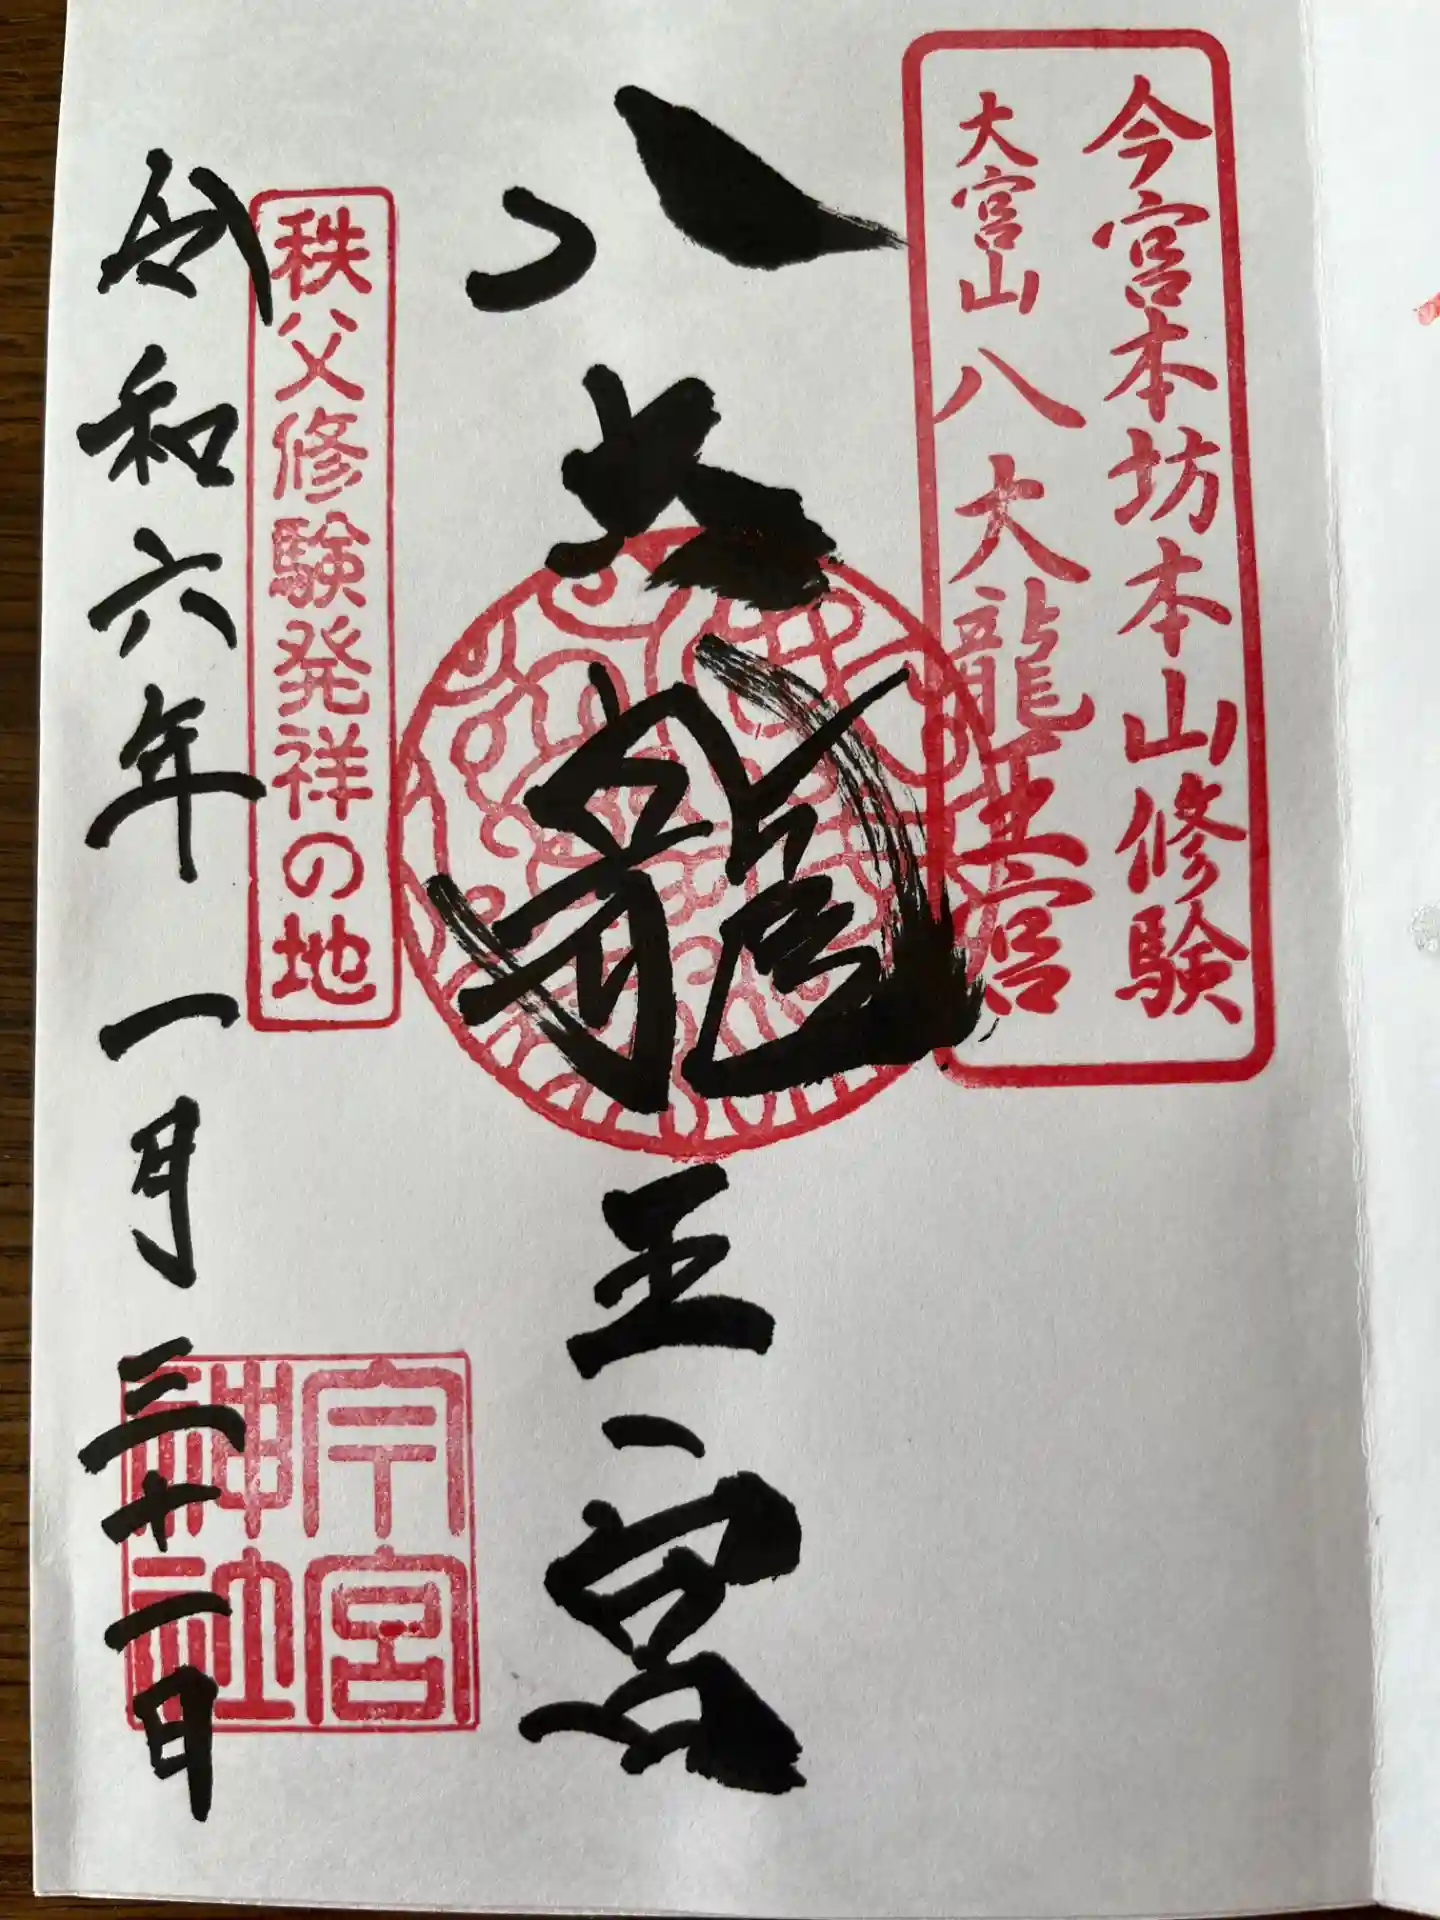 今宮本坊本山修験
大宮山八大龍王宮
八大龍王宮
秩父修験発祥の地
今宮
神社
令和六年一月三十一日